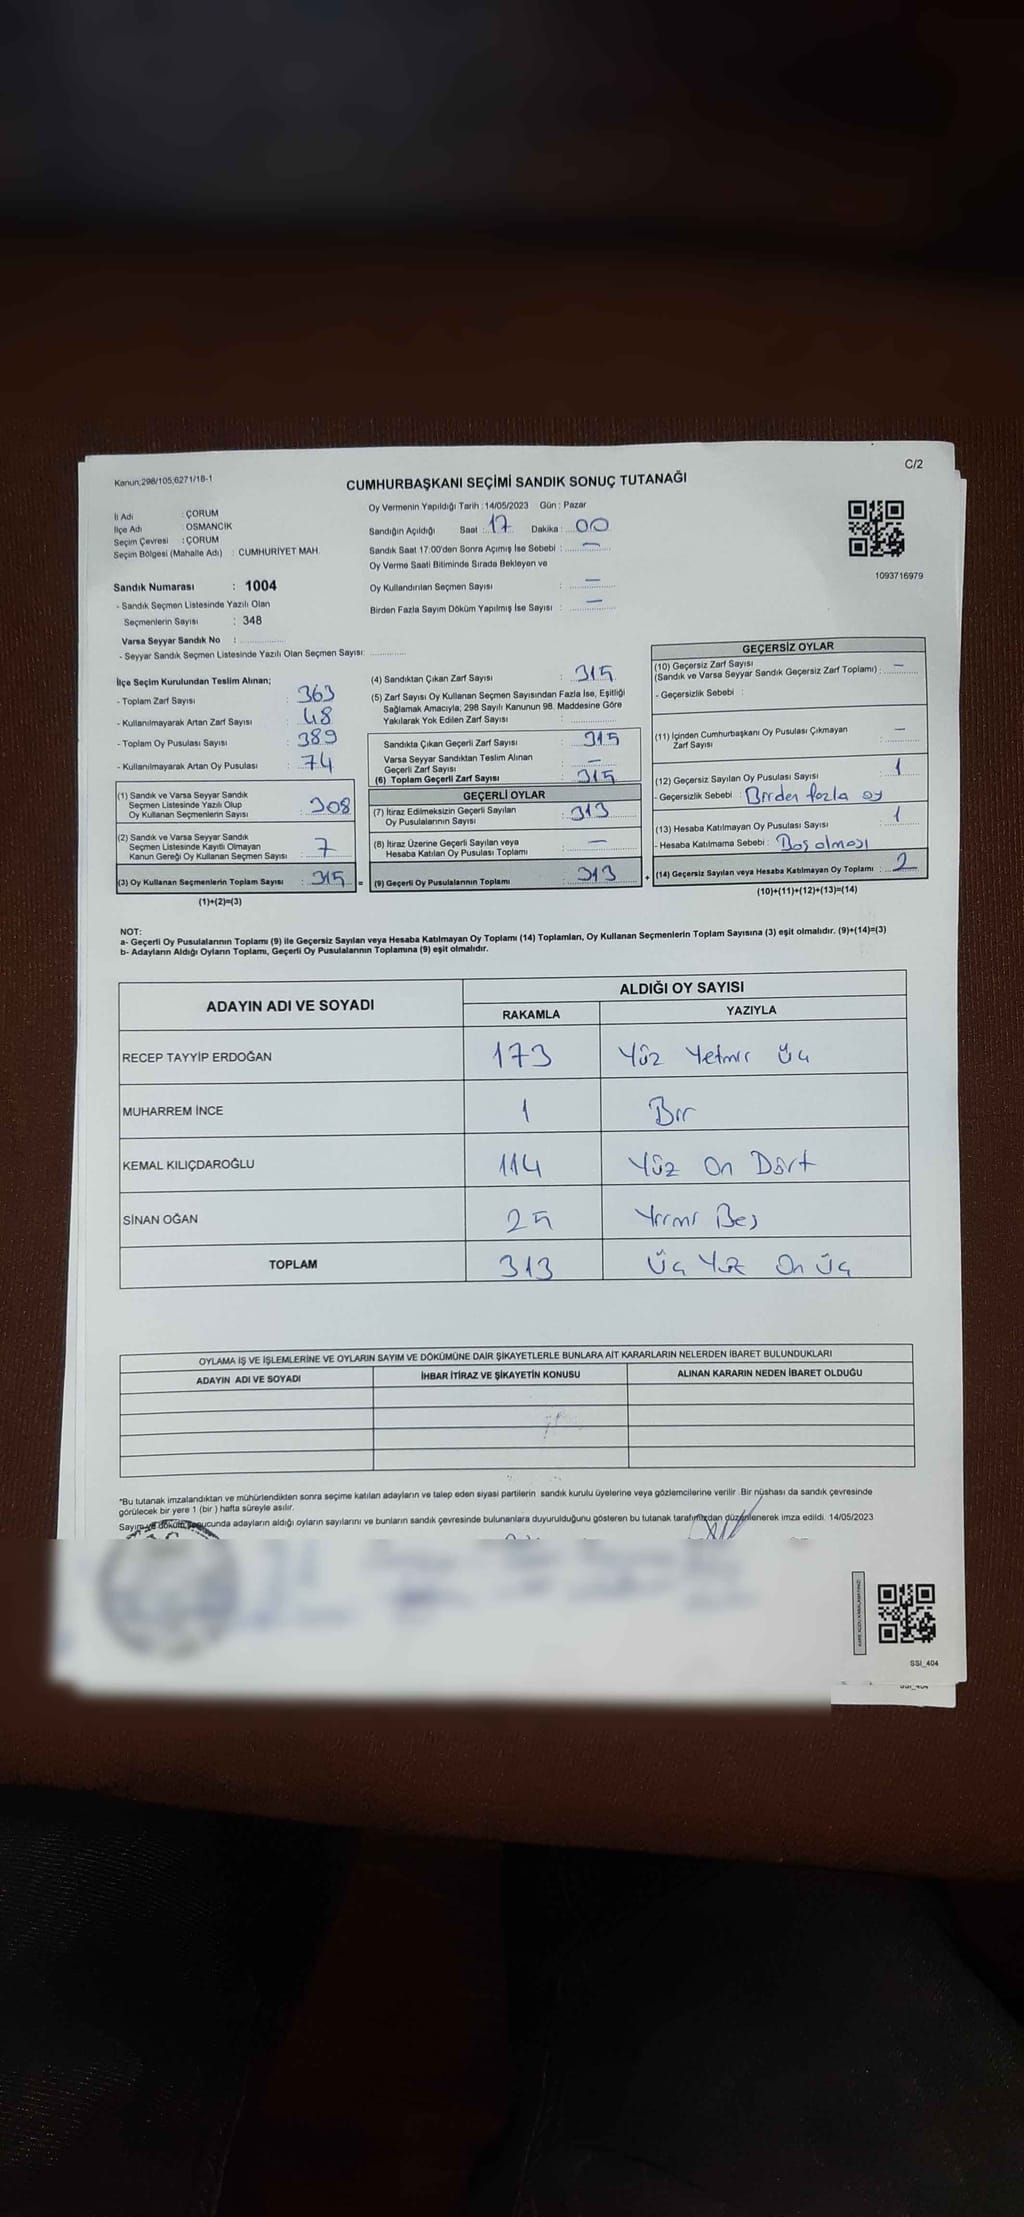 C/2
Kanun;298/105;6271/18-1
CUMHURBAŞKANI SEÇİMİ SANDIK SONUÇ TUTANAĞI
İl Adı : ÇORUM
İlçe Adı : OSMANCIK
Seçim Çevresi : ÇORUM
Seçim Bölgesi (Mahalle Adı) : CUMHURİYET MAH.
Oy Vermenin Yapıldığı Tarih : 14/05/2023 Gün : Pazar
Sandığın Açıldığı Saat : 17 Dakika : 00
Sandık Saat 17:00'den Sonra Açımış İse Sebebi : —
Oy Verme Saati Bitiminde Sırada Bekleyen ve
Oy Kullandırılan Seçmen Sayısı : —
Birden Fazla Sayım Döküm Yapılmış İse Sayısı : —
1093716979
Sandık Numarası : 1004
- Sandık Seçmen Listesinde Yazılı Olan
Seçmenlerin Sayısı : 348
Varsa Seyyar Sandık No :
- Seyyar Sandık Seçmen Listesinde Yazılı Olan Seçmen Sayısı:
İlçe Seçim Kurulundan Teslim Alınan;
- Toplam Zarf Sayısı : 363
- Kullanılmayarak Artan Zarf Sayısı : 48
- Toplam Oy Pusulası Sayısı : 389
- Kullanılmayarak Artan Oy Pusulası : 74
(1) Sandık ve Varsa Seyyar Sandık
Seçmen Listesinde Yazılı Olup
Oy Kullanan Seçmenlerin Sayısı : 308
(2) Sandık ve Varsa Seyyar Sandık
Seçmen Listesinde Kayıtlı Olmayan
Kanun Gereği Oy Kullanan Seçmen Sayısı : 7
(3) Oy Kullanan Seçmenlerin Toplam Sayısı : 315 =
(1)+(2)=(3)
(4) Sandıktan Çıkan Zarf Sayısı : 315
(5) Zarf Sayısı Oy Kullanan Seçmen Sayısından Fazla İse, Eşitliği
Sağlamak Amacıyla; 298 Sayılı Kanunun 98. Maddesine Göre
Yakılarak Yok Edilen Zarf Sayısı :
Sandıkta Çıkan Geçerli Zarf Sayısı : 315
Varsa Seyyar Sandıktan Teslim Alınan
Geçerli Zarf Sayısı : —
(6) Toplam Geçerli Zarf Sayısı : 315
GEÇERLİ OYLAR
(7) İtiraz Edilmeksizin Geçerli Sayılan
Oy Pusulalarının Sayısı : 313
(8) İtiraz Üzerine Geçerli Sayılan veya
Hesaba Katılan Oy Pusulası Toplamı : —
(9) Geçerli Oy Pusulalarının Toplamı : 313 +
GEÇERSİZ OYLAR
(10) Geçersiz Zarf Sayısı
(Sandık ve Varsa Seyyar Sandık Geçersiz Zarf Toplamı) : —
- Geçersizlik Sebebi :
(11) İçinden Cumhurbaşkanı Oy Pusulası Çıkmayan
Zarf Sayısı : —
(12) Geçersiz Sayılan Oy Pusulası Sayısı : 1
- Geçersizlik Sebebi : Birden fazla oy
(13) Hesaba Katılmayan Oy Pusulası Sayısı : 1
- Hesaba Katılmama Sebebi : Boş olması
(14) Geçersiz Sayılan veya Hesaba Katılmayan Oy Toplamı : 2
(10)+(11)+(12)+(13)=(14)
NOT:
a- Geçerli Oy Pusulalarının Toplamı (9) ile Geçersiz Sayılan veya Hesaba Katılmayan Oy Toplamı (14) Toplamları, Oy Kullanan Seçmenlerin Toplam Sayısına (3) eşit olmalıdır. (9)+(14)=(3)
b- Adayların Aldığı Oyların Toplamı, Geçerli Oy Pusulalarının Toplamına (9) eşit olmalıdır.
ADAYIN ADI VE SOYADI
ALDIĞI OY SAYISI
RAKAMLA YAZIYLA
RECEP TAYYİP ERDOĞAN 173 Yüz Yetmiş Üç
MUHARREM İNCE 1 Bir
KEMAL KILIÇDAROĞLU 114 Yüz On Dört
SİNAN OĞAN 25 Yirmi Beş
TOPLAM 313 Üç Yüz On Üç
OYLAMA İŞ VE İŞLEMLERİNE VE OYLARIN SAYIM VE DÖKÜMÜNE DAİR ŞİKAYETLERLE BUNLARA AİT KARARLARIN NELERDEN İBARET BULUNDUKLARI
ADAYIN ADI VE SOYADI İHBAR İTİRAZ VE ŞİKAYETİN KONUSU ALINAN KARARIN NEDEN İBARET OLDUĞU
*Bu tutanak imzalandıktan ve mühürlendikten sonra seçime katılan adayların ve talep eden siyasi partilerin sandık kurulu üyelerine veya gözlemcilerine verilir. Bir nüshası da sandık çevresinde
görülecek bir yere 1 (bir ) hafta süreyle asılır.
Sayım ve döküm sonucunda adayların aldığı oyların sayılarını ve bunların sandık çevresinde bulunanlara duyurulduğunu gösteren bu tutanak tarafımızdan düzenlenerek imza edildi. 14/05/2023
SSI_404